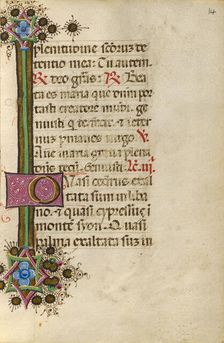 14
plenitudine sctorus de
tentio mea: Tu autem.
R deo gras: R Bea
ta es maria que dnm por
tasti creatore mudi. ge
nuisti q te fecit. & i eter
num pmanes uirgo. V
Aue maria gratia plena
dns tecu. Genuisti. Lc. iij.
Quasi cedrus exal
tata sum in liba
no. & quasi cypressus i
monte syon. Quasi
palma exaltata sum in